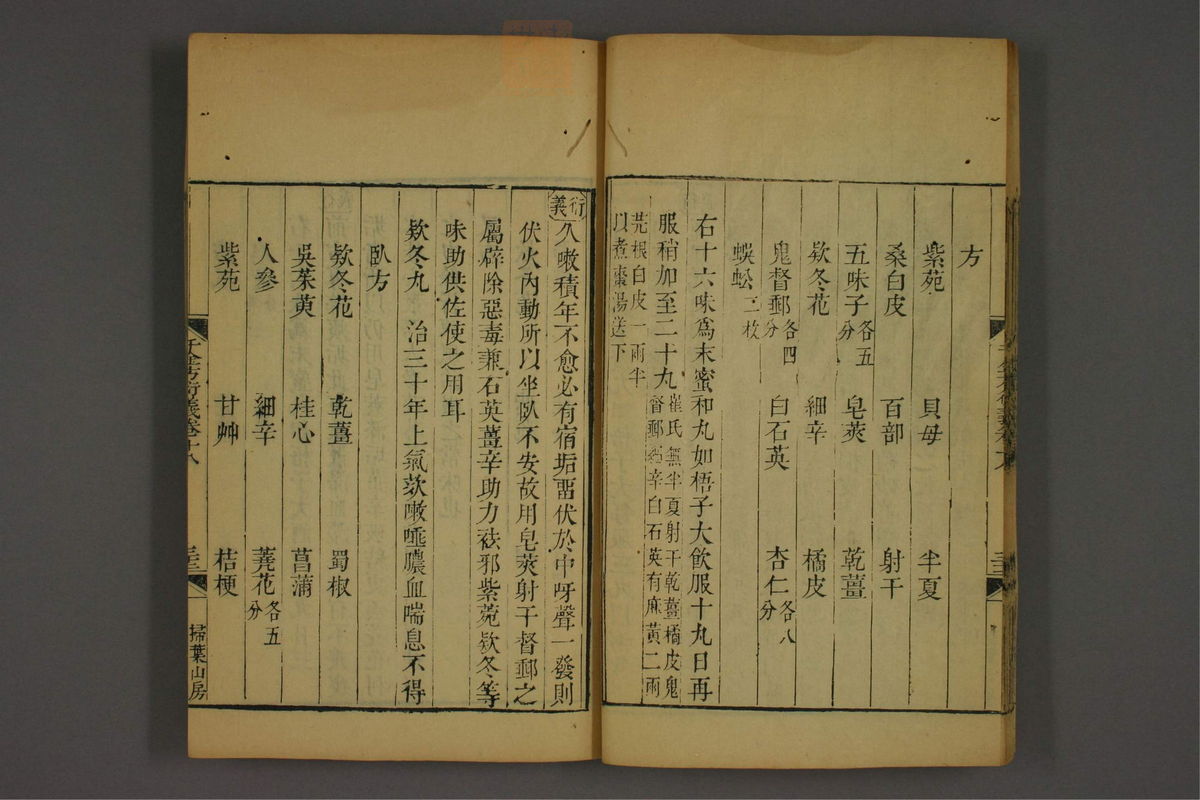 方
紫苑 貝母 半夏
桑白皮 百部 射干
五味子各五分 皂莢 乾薑
欵冬花 細辛 橘皮
鬼督郵各四分 白石英 杏仁各八分
蜈蚣二枚
右十六味爲末蜜和丸如梧子大飲服十九日再
服稍加至二十丸崔氏無半夏射干乾薑橘皮鬼
督郵細辛白石英有麻黃二兩
芫根白皮一兩半
以煮棗湯送下
千金方衍義卷十八
衍義
久嗽積年不愈必有宿垢畱伏於中呀聲一發則
伏火內動所以坐臥不安故用皂莢射干督郵之
屬辟除惡毒兼石英薑辛助力祛邪紫菀欵冬等
味助供佐使之用耳
欵冬丸 治三十年上氣欬嗽唾膿血喘息不得
臥方
欵冬花 乾薑 蜀椒
吳茱萸 桂心 菖蒲
人參 細辛 蕘花各五分
紫苑 甘艸 桔梗
千金方衍義卷十八
三三
掃葉山房